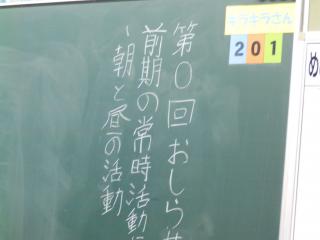 第0回おしらせ
前期の常時活動
・朝と昼の活動
キラキラさん
201
め